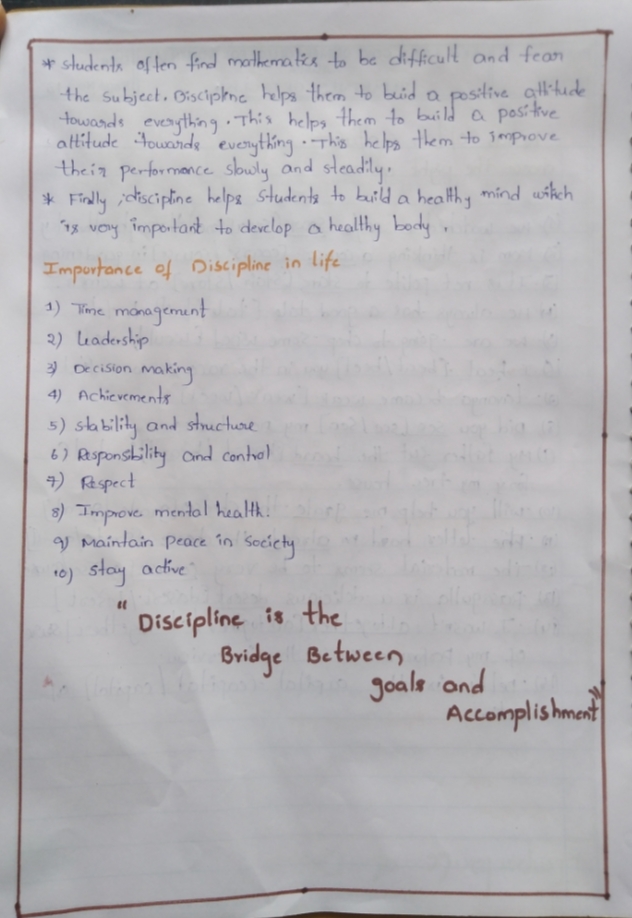 * students often find mathematics to be difficult and fear
the subject. Discipline helps them to buid a positive attitude
towards everything. This helps them to build a positive
attitude towards everything. This helps them to improve
their performance slowly and steadily.
* Finally, discipline helps students to build a healthy mind witch
is very important to develop a healthy body.
Importance of Discipline in life
1) Time management
2) Leadership
3) Decision making
4) Achievements
5) stability and structure
6) Responsibility and control
7) Respect
8) Improve mental health.
9) Maintain peace in society
10) stay active
"Discipline is the
Bridge Between
goals and
Accomplishment"